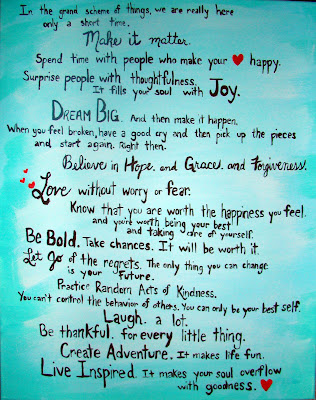 In the grand scheme of things, we are really here
only a short time.
Make it matter.
Spend time with people who make your ❤ happy.
Surprise people with thoughtfulness.
It fills your soul with Joy.
DREAM BIG. And then make it happen.
When you feel broken, have a good cry and then pick up the pieces
and start again. Right then.
Believe in Hope. and Grace. and Forgiveness.
Love without worry or fear.
Know that you are worth the happiness you feel.
and you're worth being your best
and taking care of yourself.
Be Bold. Take chances. It will be worth it.
Let Go of the regrets. The only thing you can change
is your Future.
Practice Random Acts of Kindness.
You can't control the behavior of others. You can only be your best self.
Laugh. a lot.
Be thankful. for every little thing.
Create Adventure. It makes life fun.
Live Inspired. It makes your soul overflow
with goodness. ❤